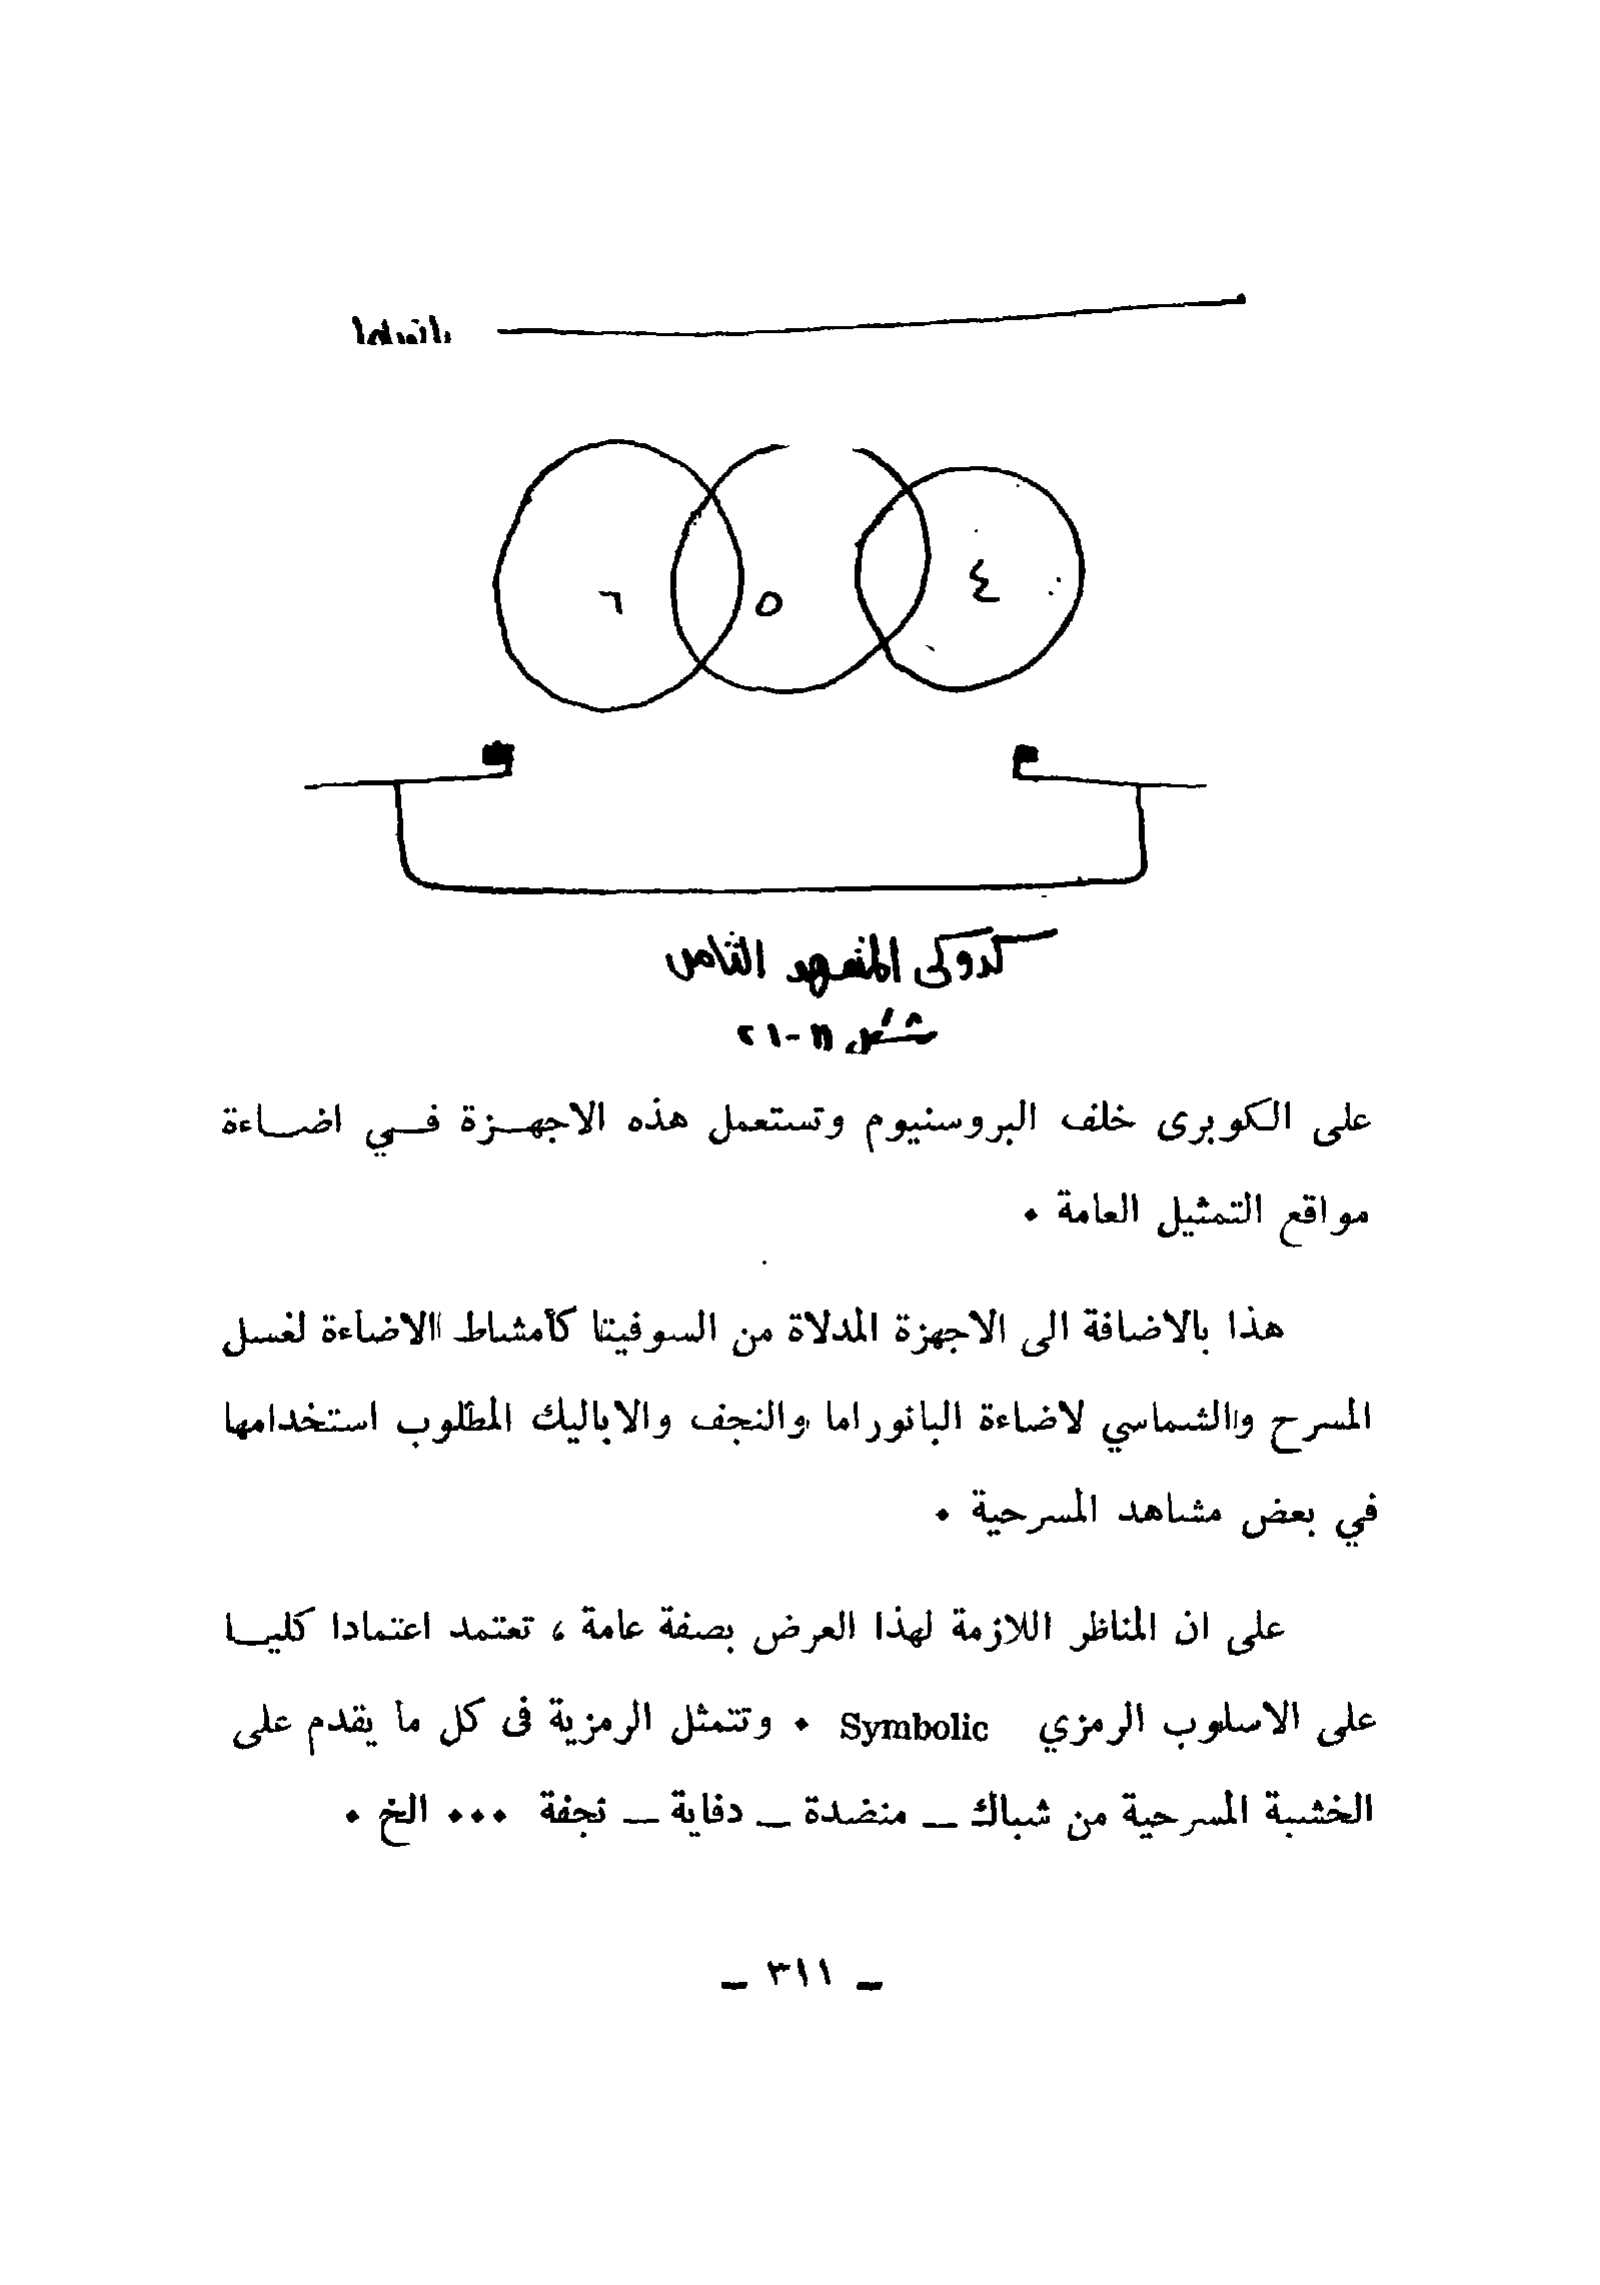 ٤
٥
٦
كدوكى المشهد الثامن
شكل
على الكوبرى خلف البروسنيوم وتستعمل هذه الاجهـزة فـي اضـاءة
مواقع التمثيل العامة .
هذا بالاضافة الى الاجهزة المدلاة من السوفيتا كأمشاط الاضاءة لغسل
المسرح والشماسي لاضاءة البانوراما والنجف والاباليك المطلوب استخدامها
في بعض مشاهد المسرحية .
على ان المناظر اللازمة لهذا العرض بصفة عامة ، تعتمد اعتمادا كليـا
على الاسلوب الرمزي Symbolic . وتتمثل الرمزية فى كل ما يقدم على
الخشبة المسرحية من شباك ــ منضدة ــ دفاية ــ نجفة ... الخ .
ــ ٣١١ ــ